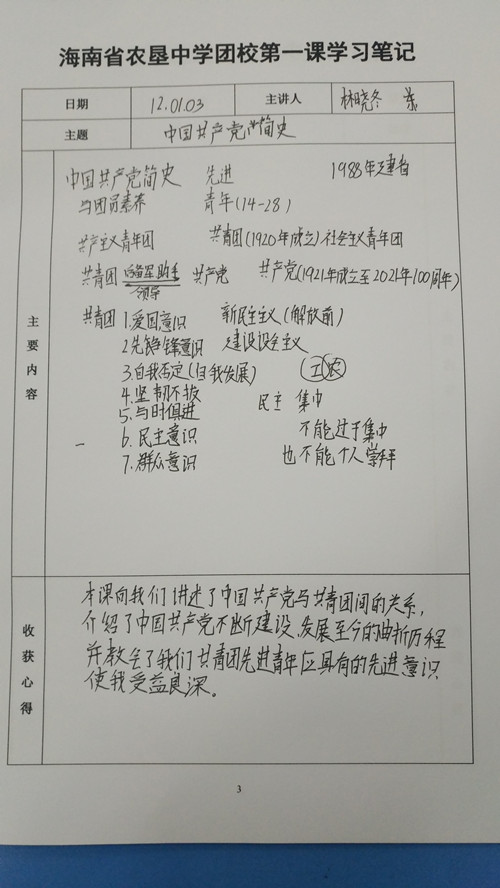 海南省农垦中学团校第一课学习笔记
日期 12.01.03 主讲人 林晓冬
主题 中国共产党简史
主要内容
中国共产党简史 先进 1988年建省
与团员素养 青年(14-28)
共产主义青年团 共青团(1920年成立)社会主义青年团
共青团 后备军 助手 共产党 共产党(1921年成立至2021年100周年)
领导
共青团 1.爱国意识 新民主主义(解放前)
2.先锋意识 建设主义
3.自我否定(自我发展) 工农
4.坚韧不拔 民主 集中
5.与时俱进
6.民主意识 不能过于集中
7.群众意识 也不能个人崇拜
收获心得
本课向我们讲述了中国共产党与共青团间的关系,
介绍了中国共产党不断建设、发展至今的曲折历程
并教会了我们共青团先进青年应具有的先进意识
使我受益良深。
3